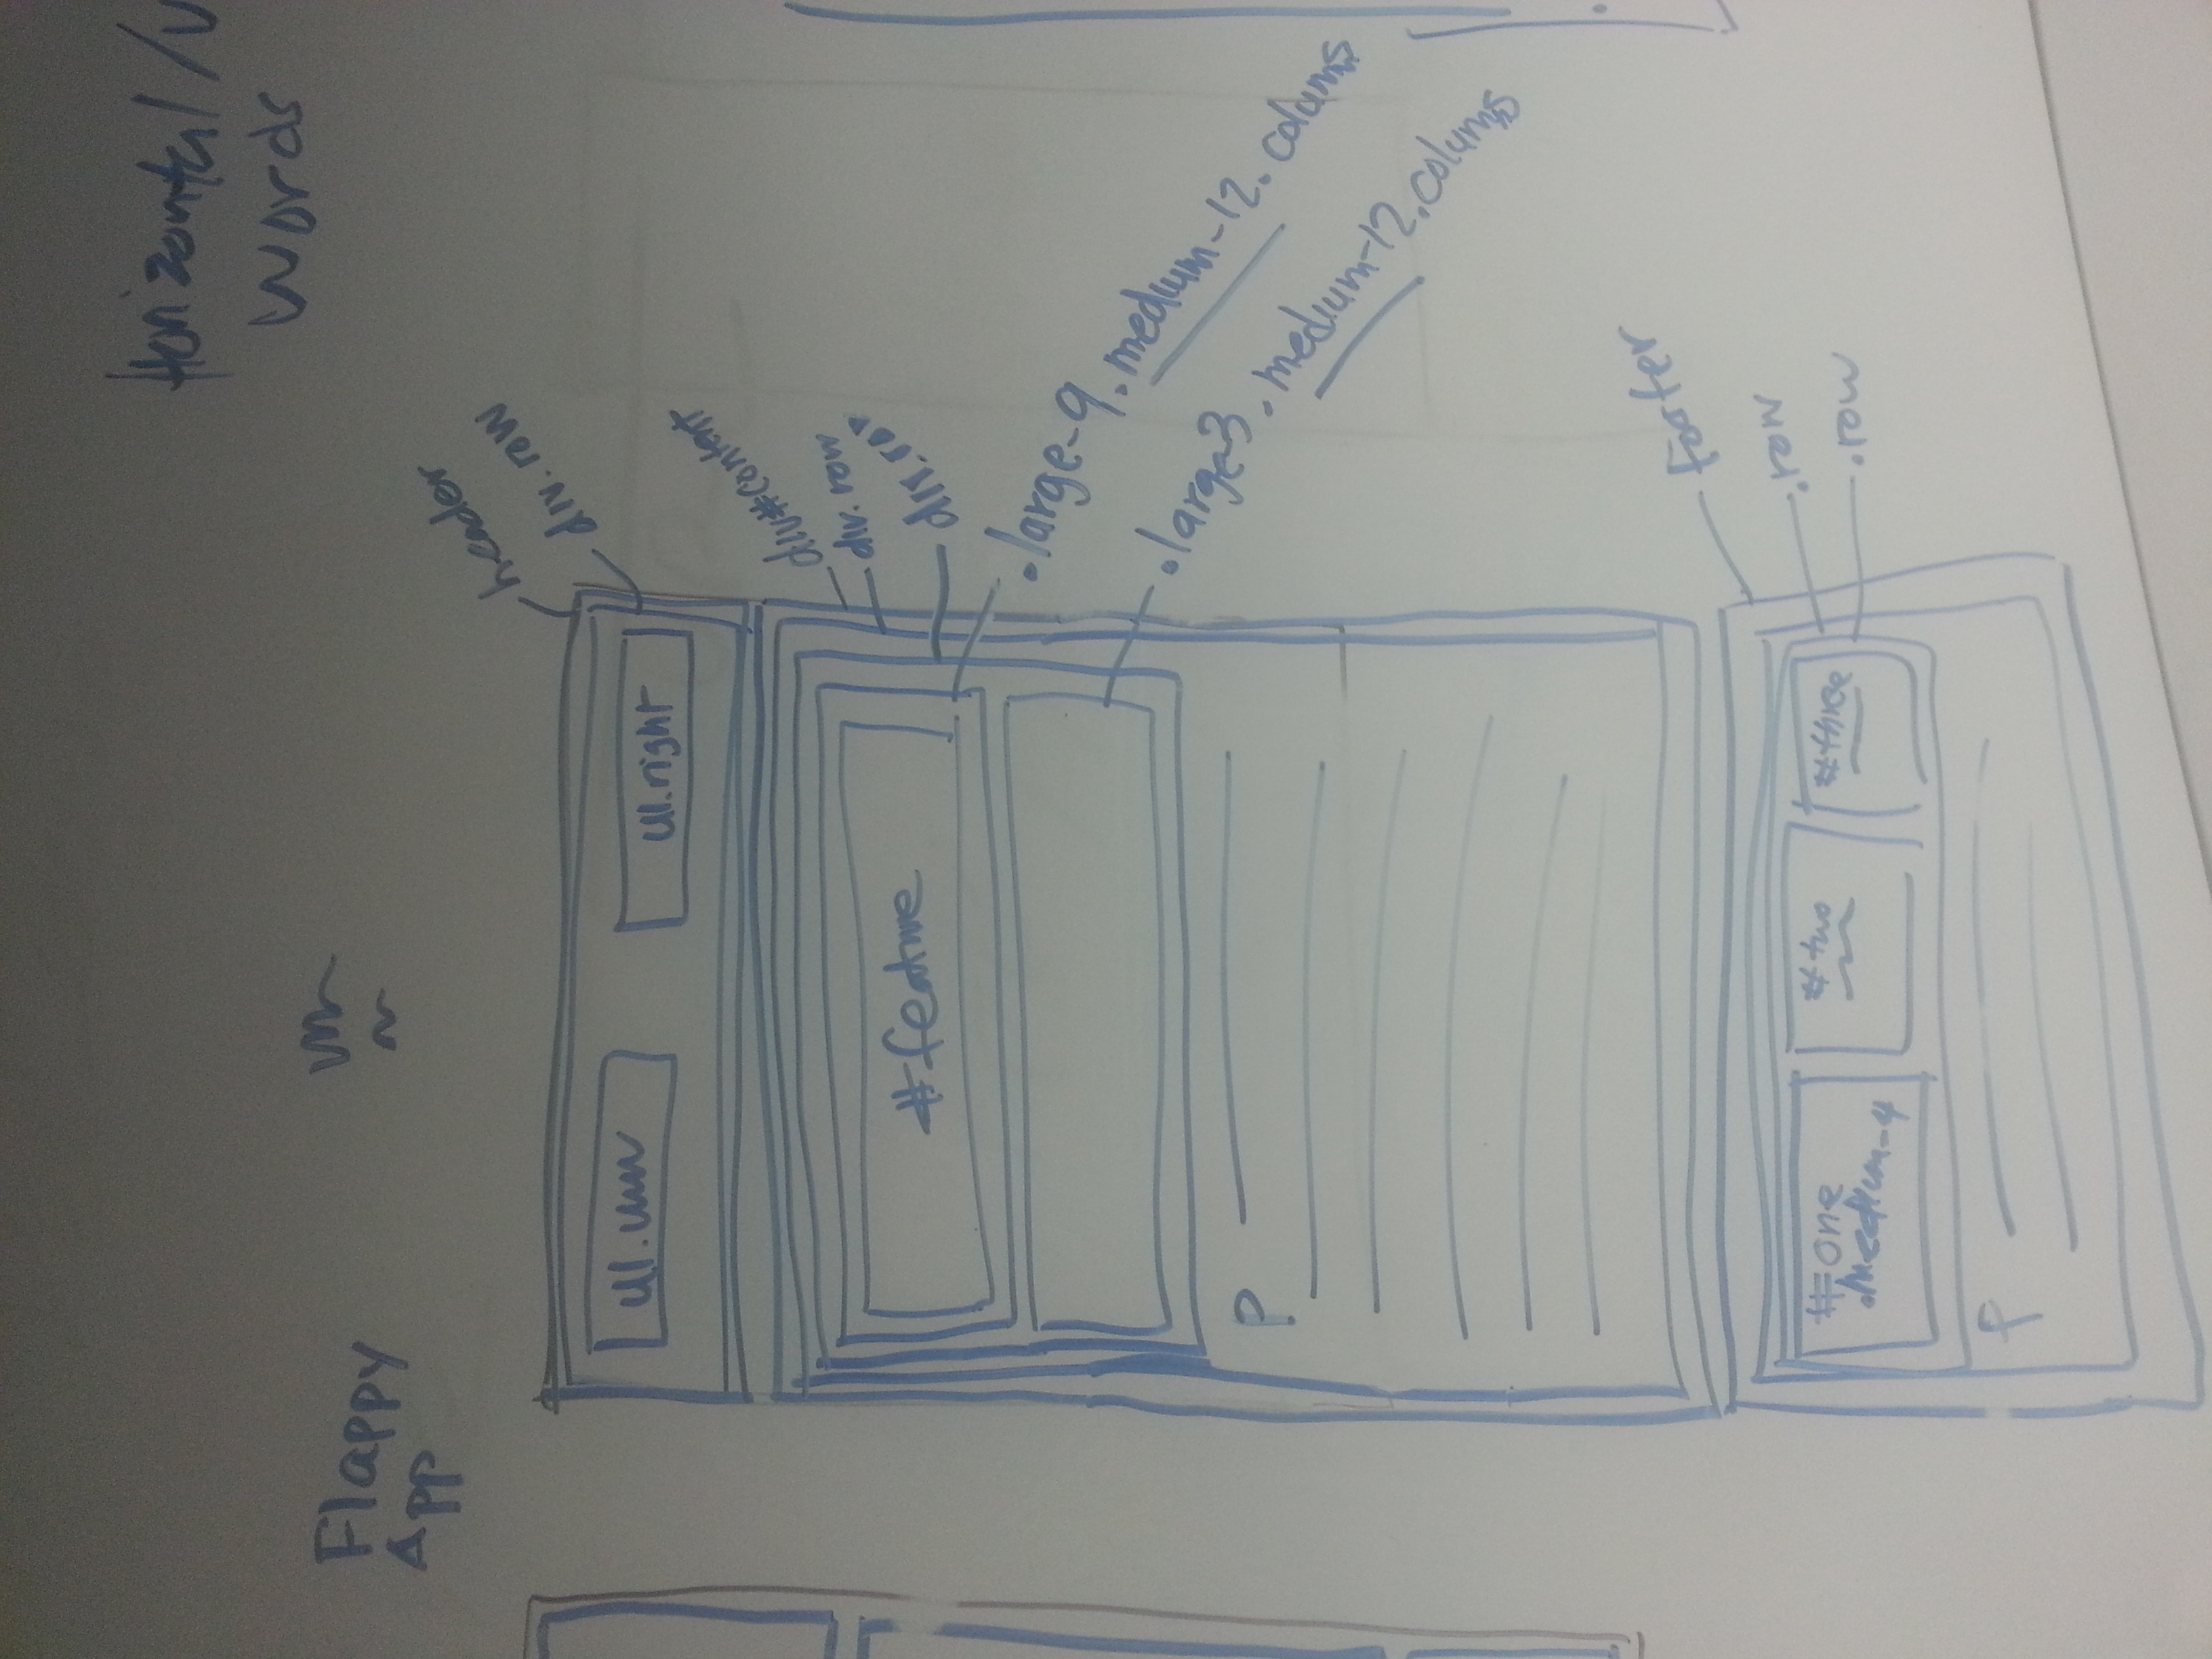 Horizontal /
words
Flappy
App
header
div.row
ul.
ul.right
div#content
div.row
div.row
#feature
.large-9.medium-12.colums
.large3.medium-12.colums
P
footer
.row
.row
#one
.medium-4
#two
#three
P